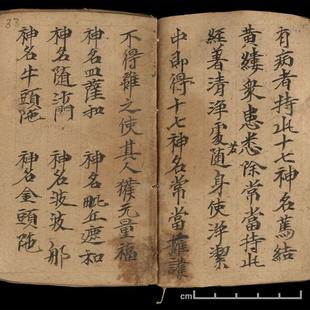 有病者持此十七神名篤結
黄縷衆患悉除常當持此
經着清淨處若随身使淨潔
中即得十七神名常當擁護
不得離之使其人獲无量福
神名皿薩和 神名眦丘遮和
神名随沙門 神名波波那
神名牛頭陁 神名金頭陁
33
cm